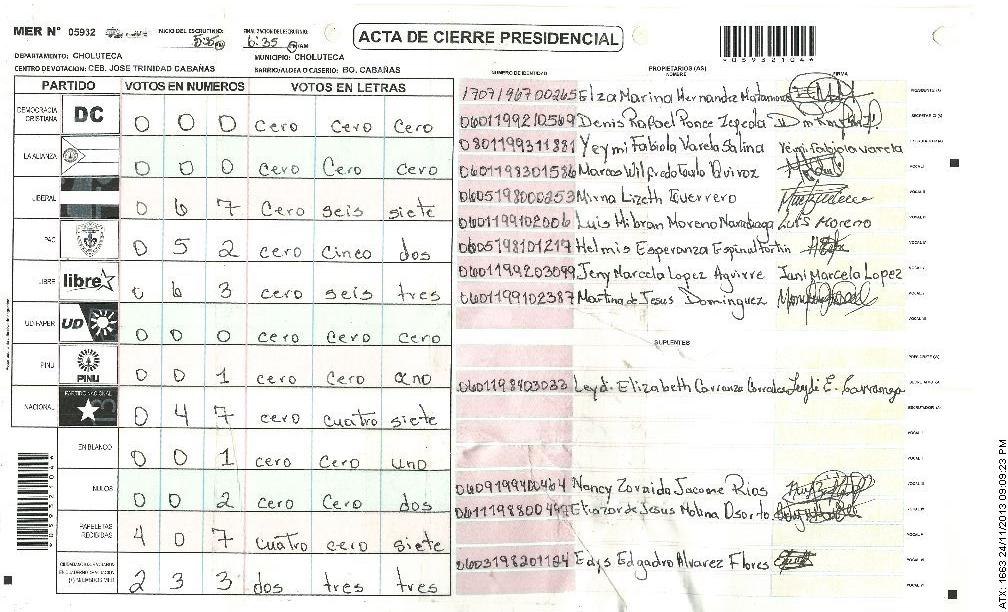 MER Nº 05932
INICIO DEL ESCRUTINIO: 5:35
FINALIZACION DEL ESCRUTINIO: 6:35
ACTA DE CIERRE PRESIDENCIAL
*05932104*
DEPARTAMENTO: CHOLUTECA
MUNICIPIO: CHOLUTECA
CENTRO DE VOTACION: CEB. JOSE TRINIDAD CABAÑAS
BARRIO/ALDEA O CASERIO: BO. CABAÑAS
PARTIDO VOTOS EN NUMEROS VOTOS EN LETRAS
NUMERO DE IDENTIDAD PROPIETARIOS (AS) NOMBRE FIRMA
DEMOCRACIA CRISTIANA DC 0 0 0 cero cero cero
LA ALIANZA 0 0 0 cero cero cero
LIBERAL 0 6 7 cero seis siete
PAC 0 5 2 cero cinco dos
LIBRE libre 0 6 3 cero seis tres
UD-FAPER UD 0 0 0 cero cero cero
PINU PINU 0 0 1 cero cero uno
NACIONAL PARTIDO NACIONAL 0 4 7 cero cuatro siete
EN BLANCO 0 0 1 cero cero uno
NULOS 0 0 2 cero cero dos
PAPELETAS RECIBIDAS 4 0 7 cuatro cero siete
2 3 3 dos tres tres
1707196700265 Elza Marina Hernandez Matamoros
0601199210569 Denis Rafael Ponce Zepeda
0801199311881 Yeymi Fabiola Varela Salina Yeymi Fabiola Varela
0601198301586 Marcos Wilfredo Tulo Quiroz
0605198000253 Mirna Lizeth Guerrero
0601199102006 Luis Hibran Moreno Luis Moreno
0605198101217 Helmis Esperanza Espinal Portin
0601199203099 Jeny Marcela Lopez Aguirre Jeni Marcela Lopez
0601199102387 Martina de Jesus Dominguez
SUPLENTES
0601198403033 Leydi Elizabeth Carranza Corrales Leydi E. Carranza
0609199400464 Nancy Zoraida Jacome Rios
0611198800497 Eliazar de Jesus Molina Osorto
0603198201124 Edys Edgadro Alvarez Flores
*05932104*
ATX: 1663 24/11/2013 09:09:23 PM